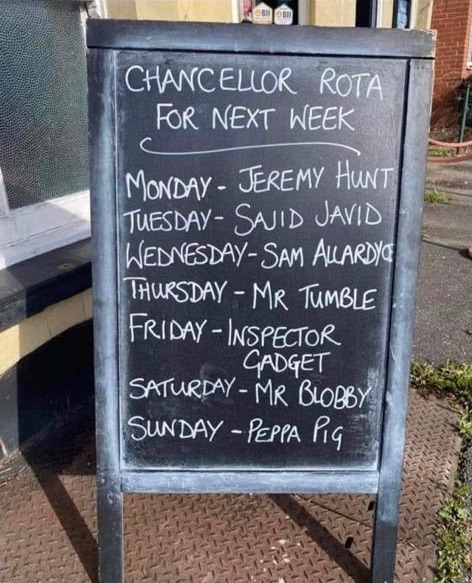 CHANCELLOR ROTA
FOR NEXT WEEK
MONDAY - JEREMY HUNT
TUESDAY - SAJID JAVID
WEDNESDAY - SAM ALLARDYCE
THURSDAY - MR TUMBLE
FRIDAY - INSPECTOR
GADGET
SATURDAY - MR BLOBBY
SUNDAY - PEPPA PIG